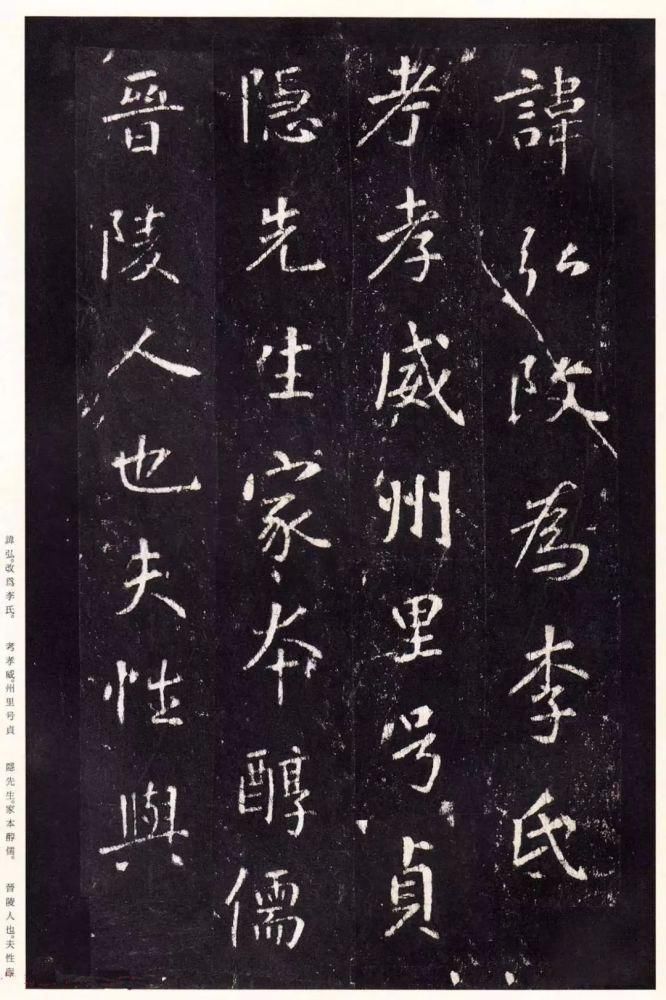 諱弘改為李氏
考孝威州里号貞
隠先生家本醇儒
晉陵人也夫性與
諱弘。改爲李氏。 考孝威。州里号貞 隱先生。家本醇儒。 晉陵人也。夫性與